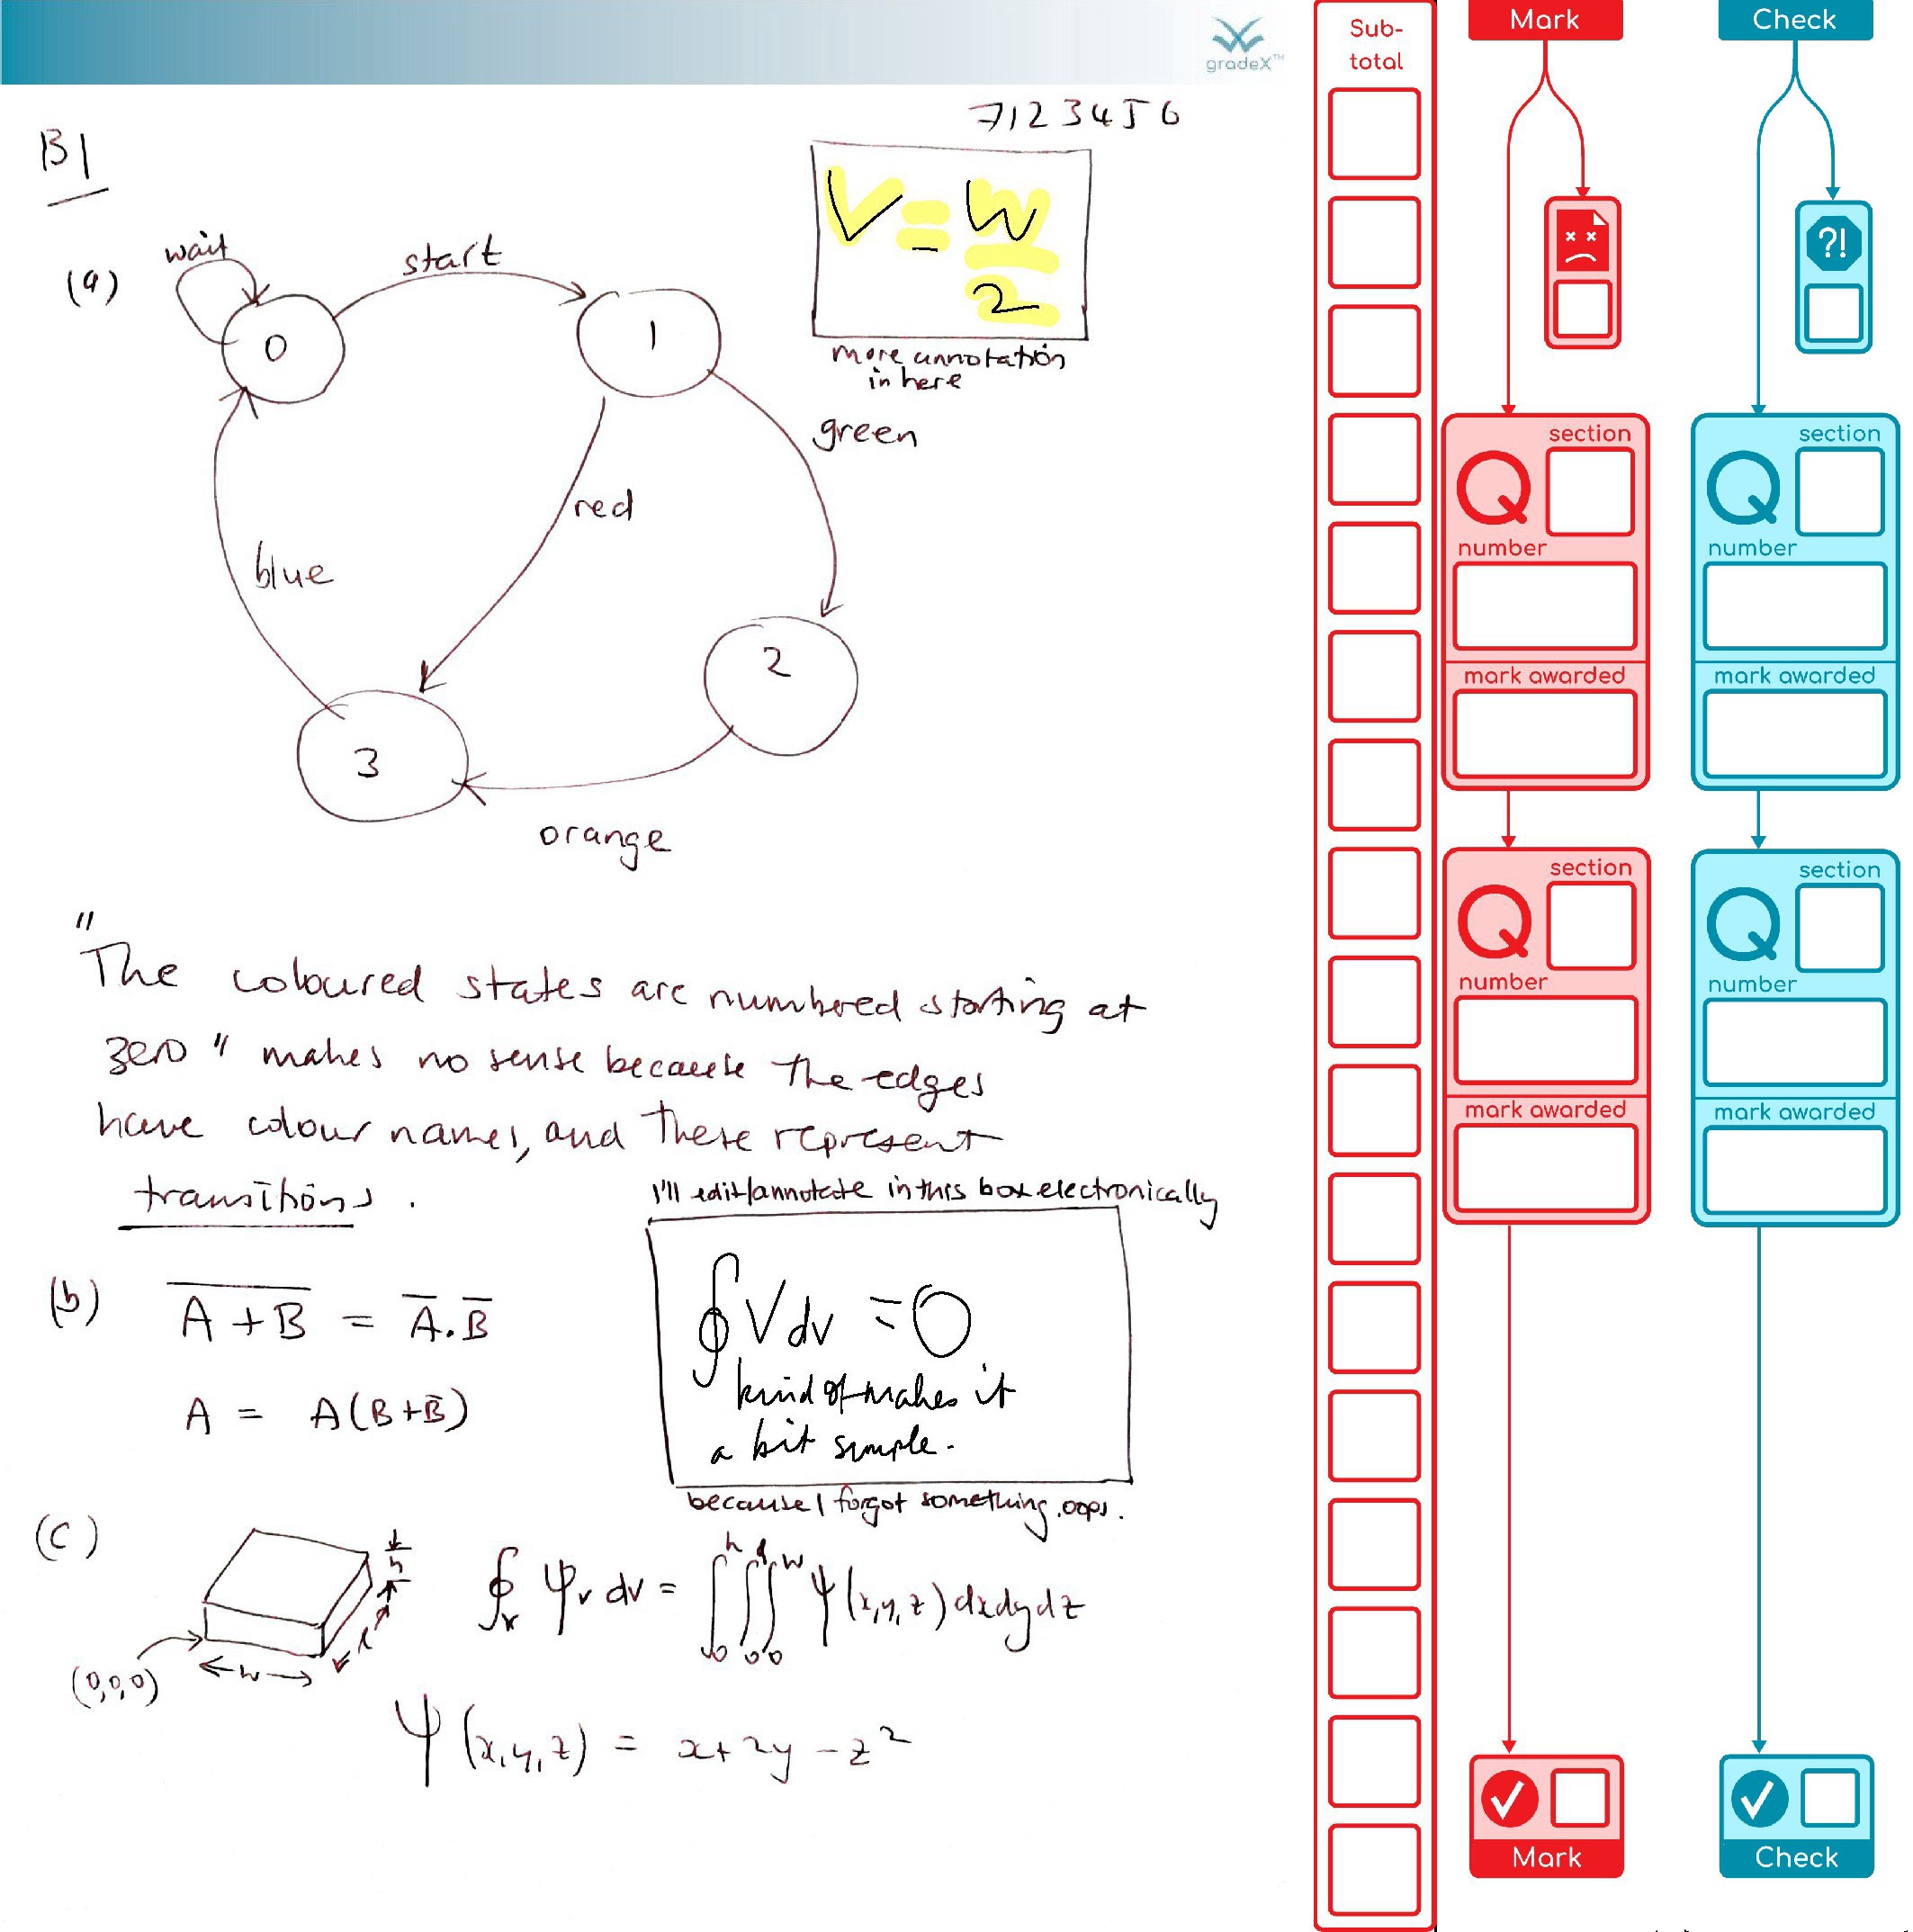 gradeX™
7123456
B1
V = W
2
more annotation
in here
(a)
wait
start
0
1
green
red
blue
2
3
orange
"The coloured states are numbered starting at
zero" makes no sense because the edges
have colour names, and these represent
transitions.
I'll edit/annotate in this box electronically
∮ V dv = 0
kind of makes it
a bit simple.
because I forgot something, oops.
(b) \overline{A + B} = \overline{A}.\overline{B}
A = A(B+\overline{B})
(c)
h
l
w
(0,0,0)
∮_v ψ_v dv = ∫_0^h ∫_0^l ∫_0^w ψ(x,y,z) dxdydz
ψ(x,y,z) = x+2y-z²
Sub-
total
Mark
section
Q
number
mark awarded
section
Q
number
mark awarded
Mark
Check
?!
section
Q
number
mark awarded
section
Q
number
mark awarded
Check